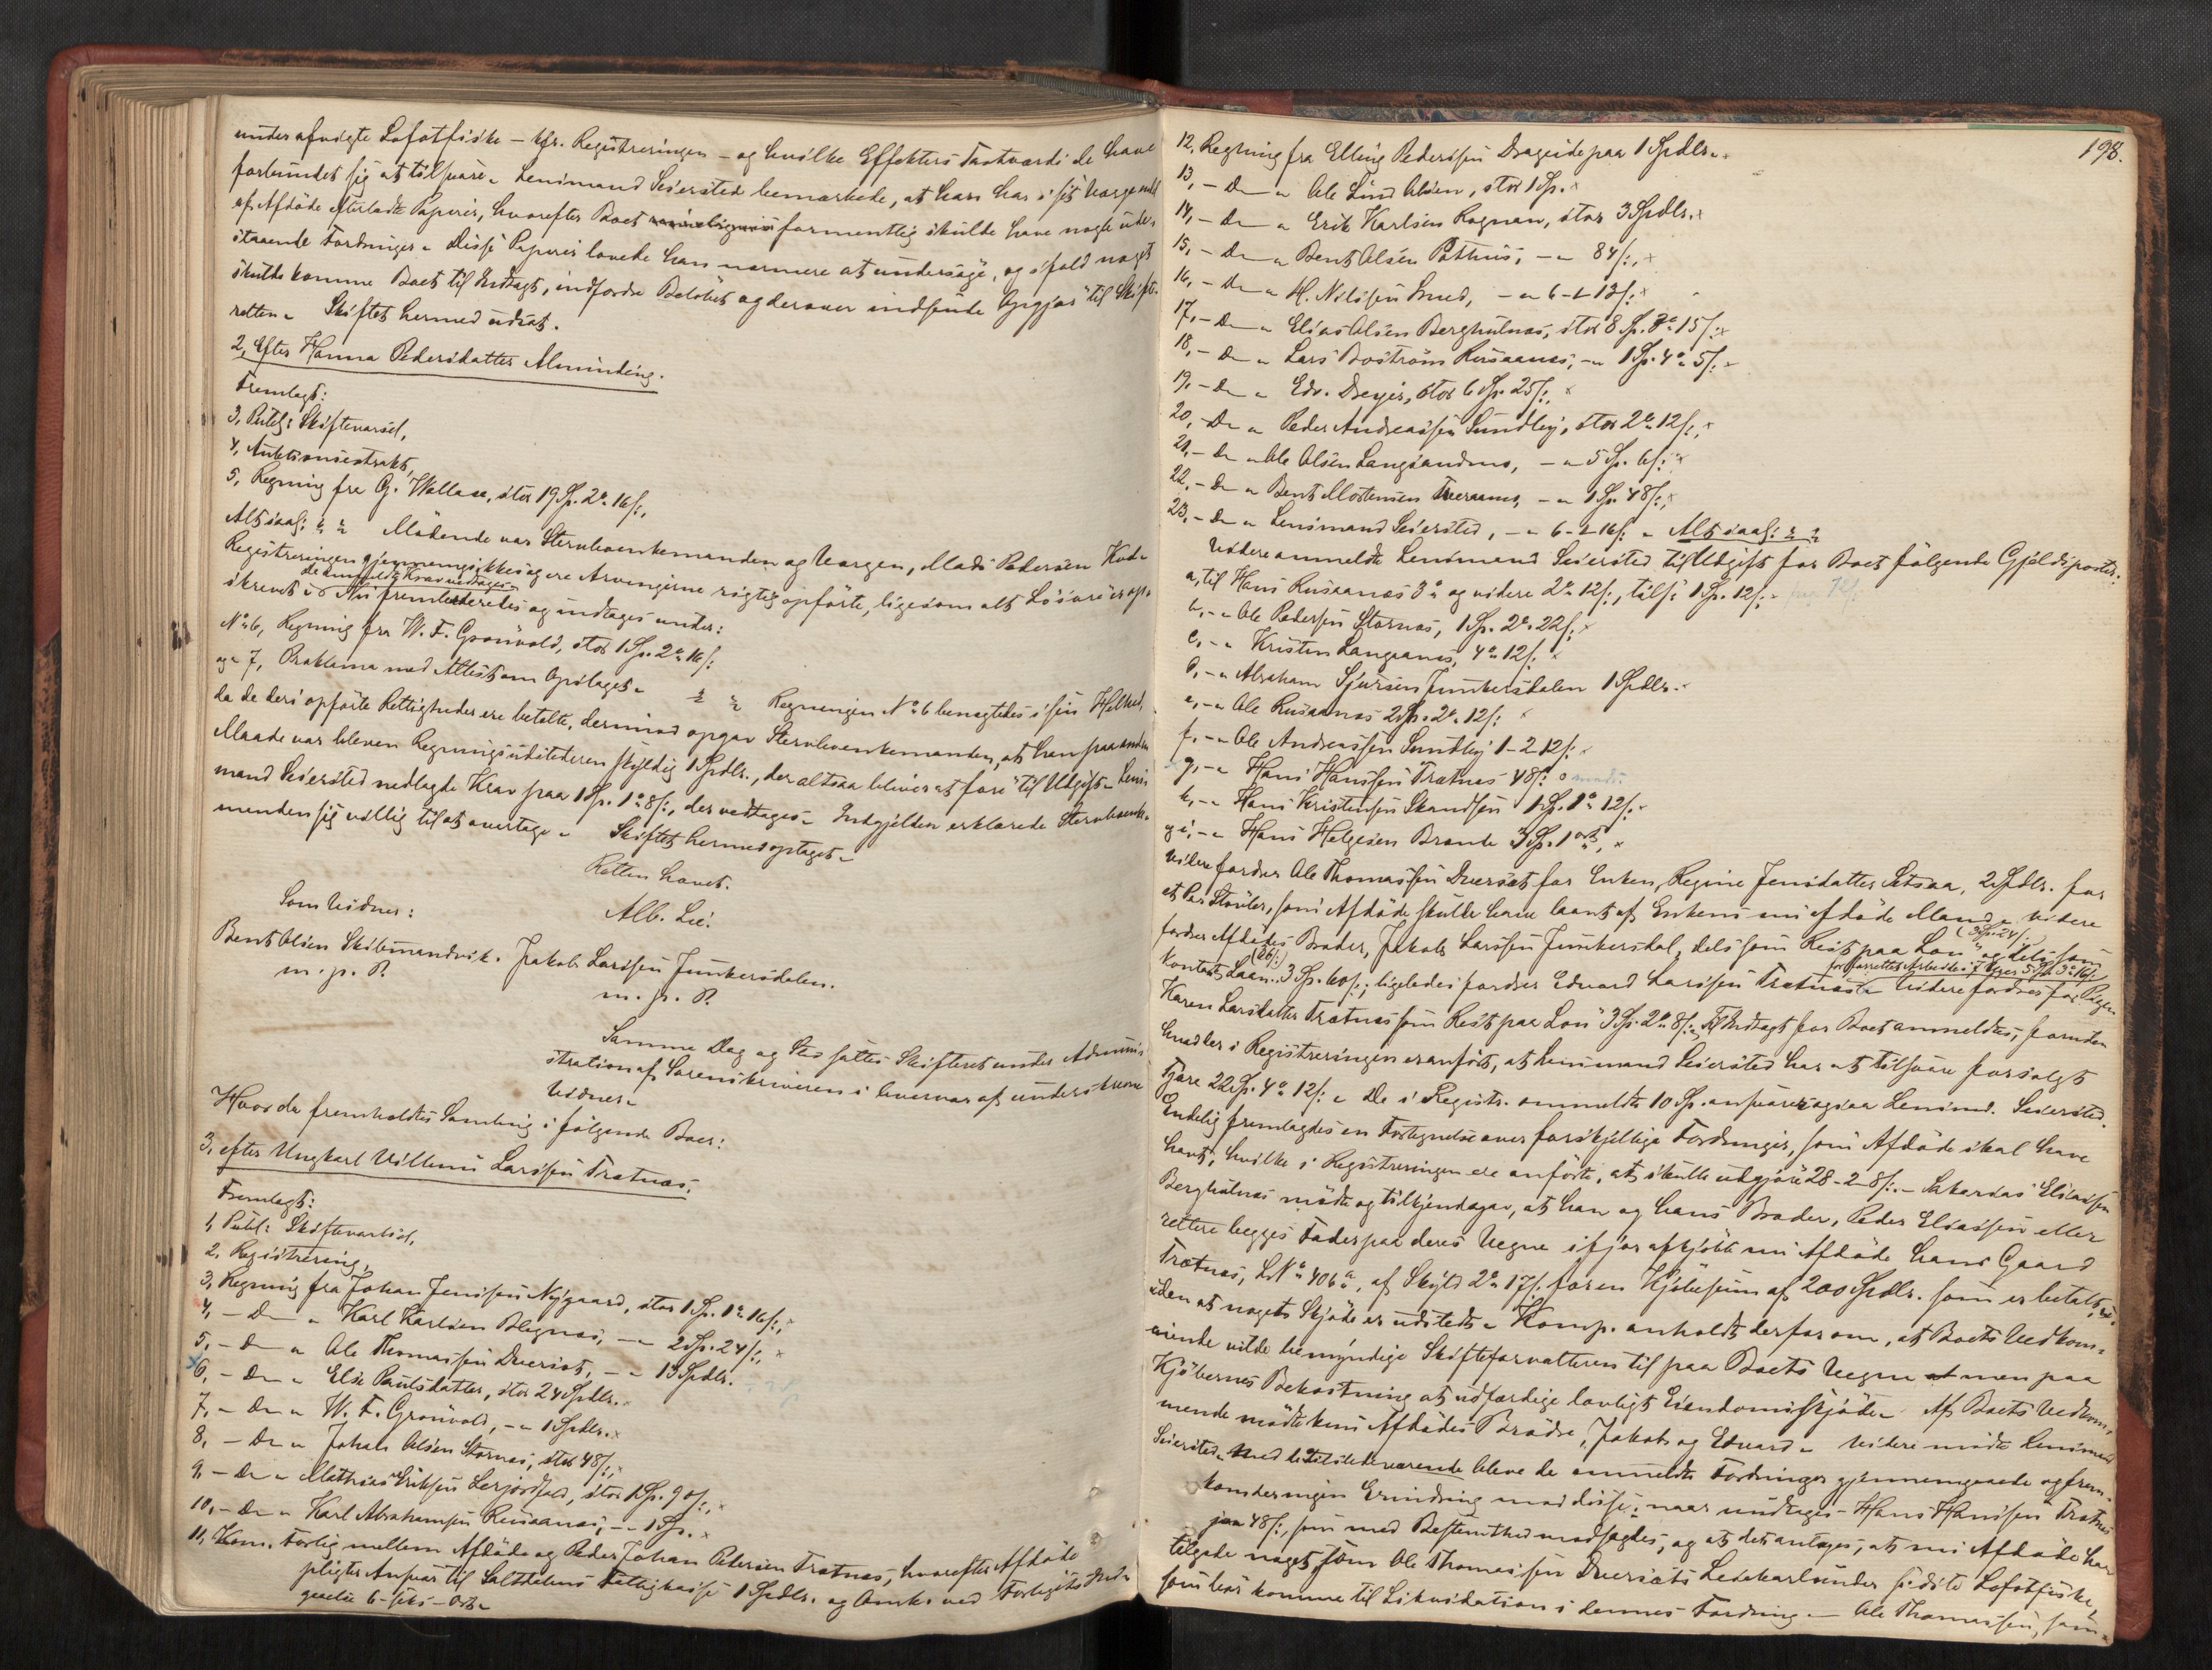 underafvigte Lofotfiske – kfr. Registreringen – og hvilke Effekters Taxtværdi de have
forbundet sig at tilsvare. Lensmand Seiersted bemærkede, at han har i sit Værge endel
af Afdøde efterladte Papirer, hvorefter Boet formentlig skulde have nogle ude-
staaende Fordringer. Disse Papirer lovede han nærmere at undersøge, og ifald noget
skulde komme Boet til Indtægt, indfordre Beløbet og derover indsende Opgjør til Skifte-
retten. Skiftet hermed udsat.
2, Efter Hanna Pedersdatter Alminding.
Fremlagt:
3, Publ: Skiftevarsel,
4, Auktionsextrakt,
5, Regning fra G. Wallase, stor 19 Sp. 2 16 s:,
Altsaa: Mødende var Stervboenkemanden og Værgen, Mads Pedersen
Registreringen gjennemgikkes og ere Arvingerne rigtig opførte, ligesom alt Løsøre er op-
skrevet. de anmeldte Krav vedtages. Nu fremlededes og indtages under:
No 6, Regning fra W. F. Grønvold, stor 1 Sp. 2 16 s:
og 7, Proklama med Attest om Opslaget. Regningen No 6 benægtedes i sin Helhed,
da de deri opførte Rettigheder ere betalte, derimod opgav Stervboenkemanden, at han paa anden
Maade var bleven Regningsudstederen skyldig 1 Spdlr., der altsaa bliver at føre til Udgift. Lens-
mand Seiersted nedlagde Krav paa 1 Sp. 1 8 s:, der vedtages. Indgjelden erklærede Stervboenke-
manden sig villig til at overtage. Skiftet hermed optaget.
Retten hævet.
Alb. Lie.
Som Vidner:
Bent Olsen Skibmandvik. Jakob Larssen Junkersdalen.
m. p. P. m. p. P.
Samme Dag og Sted sattes Skifteret under Admini-
stration af Sorenskriveren i Overvær af underskrevne
Vidner.
Hvor da fremholdtes Samling i følgende Boer:
3, efter Ungkarl Villum Larssen Trætnæs.
Fremlagt:
1, Publ: Skiftevarsel,
2, Registrering,
3, Regning fra Johan Jenssen Nygaard, stor 1 Sp. 1 16 s:,
4, – Do – Karl Karlsen Rognæs, – 2 Sp. 24 s:, x
5, – Do – Ole Thomassen Dverset, – 13 Spdlr.
6, – Do – Else Paulsdatter, stor 24 Spdlr.
7, – Do – W. F. Grønvold, – 1 Spdlr. x
8, – Do – Johan Olsen Stornæs, stor 48 s:,
9, – Do – Mathias Eriksen Lerjordfald, stor 1 Sp. 90 s:, x
10, – Do – Karl Abrahamsen Rusaanæs, – 1 Sp. x
11, Kom. Forlig mellem Afdøde og Peder Johan Petersen Trætnæs, hvorefter Afdøde
pligter Ansvar til Saltdalens Fattigkasse 1 Spdlr. og Omk. ved Forligets
gaaelse 6 – seks – Ort.
198.
12, Regning fra Elling Pedersen Drageide paa 1 Spdlr. x
13, – Do – Ole Lund Olsen, stor 1 Sp. x
14, – Do – Erik Karlsen Rognan, stor 3 Spdlr. x
15, – Do – Bent Olsen Pothus, – 84 s:, x
16, – Do – H. Nilssen Smed, – 6 – 1 13 s: x
17, – Do – Elias Olsen Berghulnæs, stor 8 Sp. 3 15 s: x
18, – Do – Lars Boström Rusaanæs, – 1 Sp. 4 5 s:
19, – Do – Edv. Dreyer, stor 6 Sp. 25 s:, x
20, – Do – Peder Andreassen Sundby, stor 2 12 s:, x
21, – Do – Ole Olsen Langsandmo, – 5 Sp. 6 s: x
22, – Do – Bent Mortensen Tveraanes, – 1 Sp. 48 s:, x
23, – Do – Lensmand Seiersted, – 6 – 1 – 16 s: – Altsaa:
Videre anmeldte Lensmand Seiersted til Udgift for Boet følgende Gjældsposter:
a, til Hans Rusaanæs 3 og videre 2 12 s:, tils: 1 Sp. 12 s:
b, – Ole Pedersen Stornæs, 1 Sp. 2 22 s: x
c, – Kristen Langsanes, 4 12 s: x
d, – Abraham Sjursen Junkersdalen 1 Spdlr. x
e, – Ole Rusaanæs 2 Sp. 2 12 s: x
f, – Ole Andreassen Sundby 1 – 2 12 s: x
g, – Hans Hanssen Trætnes 48 s:
h, – Hans Kristensen Skandsen 1 Sp. 1 12 s: x
og i, – Hans Helgesen Brænde 3 Sp. 1 ort, x
videre fordrer Ole Thomassen Dverset for Enken, Regine Jensdatter Setsaa, 2 Spdlr. for
et Par Støvler, som Afdøde skulle have laant af Enkens nu afdøde Mand. videre
fordrer Afdødes Broder, Jakob Larssen Junkersdal, dels som Rest paa Løn (3 Sp. 24 s:) og dels som
kontant Laan (26 s:) 3 Sp. 60 s:; ligeledes fordrer Edvard Larssen Trætnæs for forrettet Arbeide i 7 Uger 5 Sp. 3 16 s: Videre fordres for Pigen
Karen Larsdatter Trætnæs som Rest paa Løn 3 Sp. 2 8 s: Til Indtægt for Boet anmeldtes, foruden
hvad der i Registreringen er anført, at Lensmand Seiersted har at tilsvare for solgt
Tjære 22 Sp. 4 12 s:. De i Registr. anmeldte 10 Sp. ansvarer ogsaa Lensmd. Seiersted.
Endelig fremlagdes en Fortegnelse over forskjellige Fordringer, som Afdøde skal have
havt, hvilke i Registreringen ere anførte, at skulle udgjøre 28 – 2 – 8 s:. – Sakarias Eliassen
Berghulnæs mødte og tilkjendegav, at han og hans Broder, Peder Eliassen eller
rettere begges Fader paa deres Vegne i fjor afkjøbte nu Afdøde hans Gaard
Trætnæs, L. No 406 a, af Skyld 2 17 s. for en Kjøbesum af 200 Spdlr. som er betalt,
uden at noget Skjøde er udstedt. Komp. anholdt derfor om, at Boets Vedkom-
mende vilde bemyndige Skifteforvalteren til paa Boets Vegne men paa
Kjøbernes Bekostning at udfærdige lovligt Eiendomsskjøde. Af Boets Vedkom-
mende mødte kun Afdødes Brødre, Jakob og Edvard. Videre mødte Lensmand
Seiersted. Med de tilstedeværende bleve de anmeldte Fordringer gjennemgaaede og frem-
kom der ingen Erindring mod disse, naar undtages Hans Hanssen Trætnes
paa 48 s:, som med Bestemthed modsagdes, og at det antages, at nu Afdøde har
tilgode noget som Ole Thomassen Dversets Leiekarl under sidste Lofotfiske,
som bør komme til Likvidation i dennes Fordring. – Ole Thomassen, som